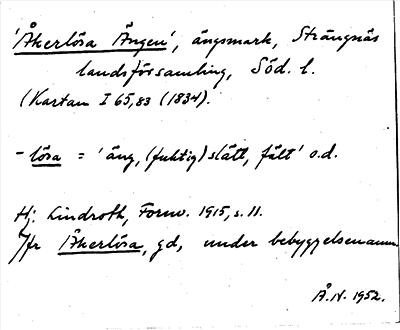 'Åkerlösa Ängen', ängsmark, Strängnäs
landsförsamling, Söd. l.
(Kartan I 65,83 (1834).
- lösa = 'äng, (fuktig) slätt, fält' o.d.
Hj. Lindroth, Fornv. 1915, s. 11.
Jfr Åkerlösa, gd, under bebyggelsenamn.
Å.N. 1952.